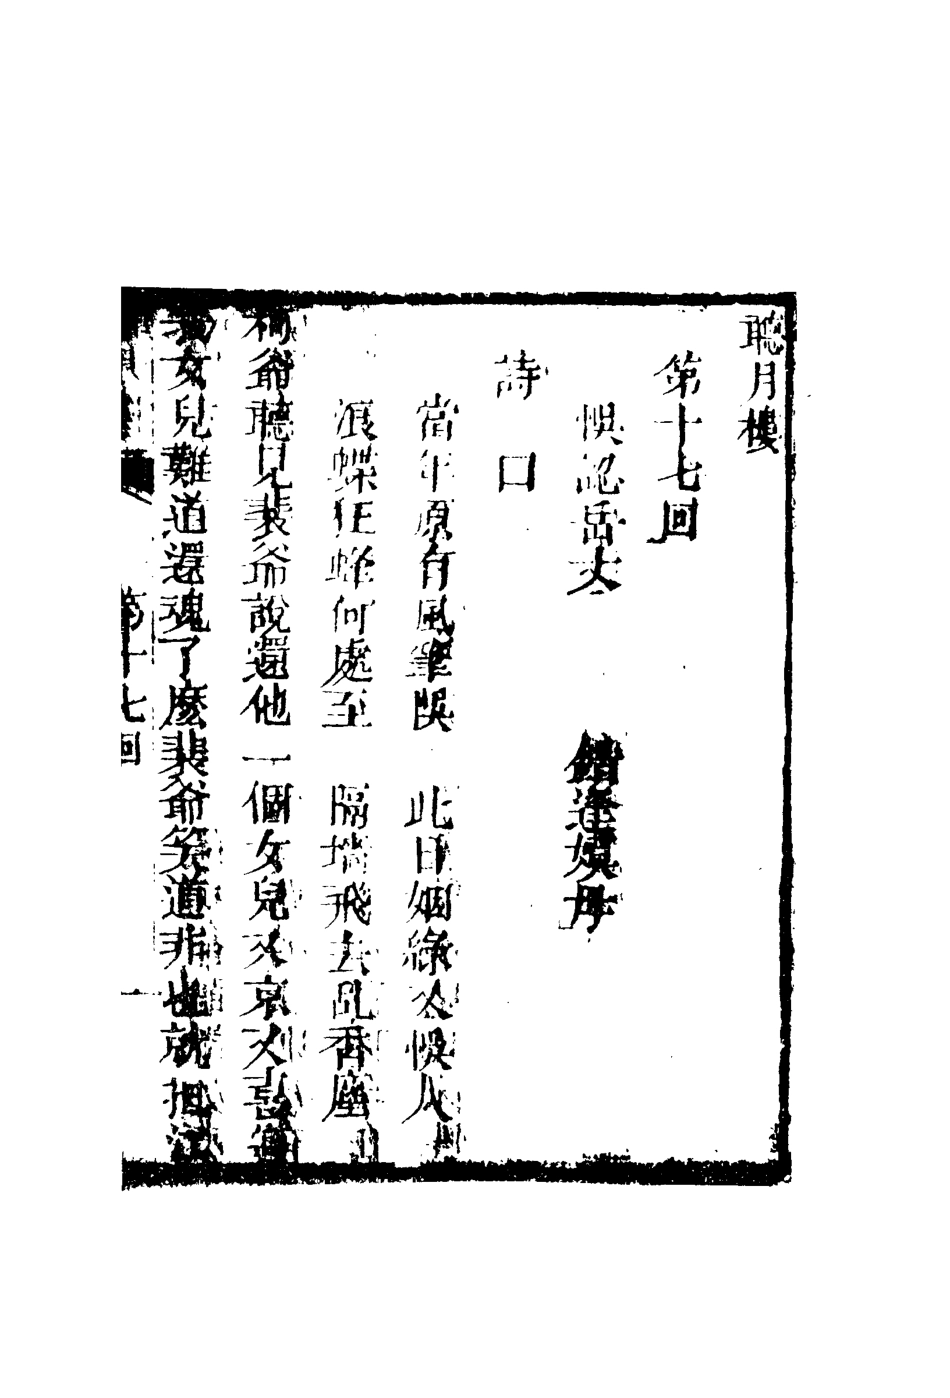 聽月樓
第十七回
悞認岳丈　錯逢嬌母
詩曰
當年原有風箏悞　此日姻緣又悞人
浪蝶狂蜂何處至　隔墻飛去乱香塵
柯爺聽見裴爺說還他一個女兒又哀又喜
我女兒難道還魂了麼裴爺笑道非也就把
第十七回